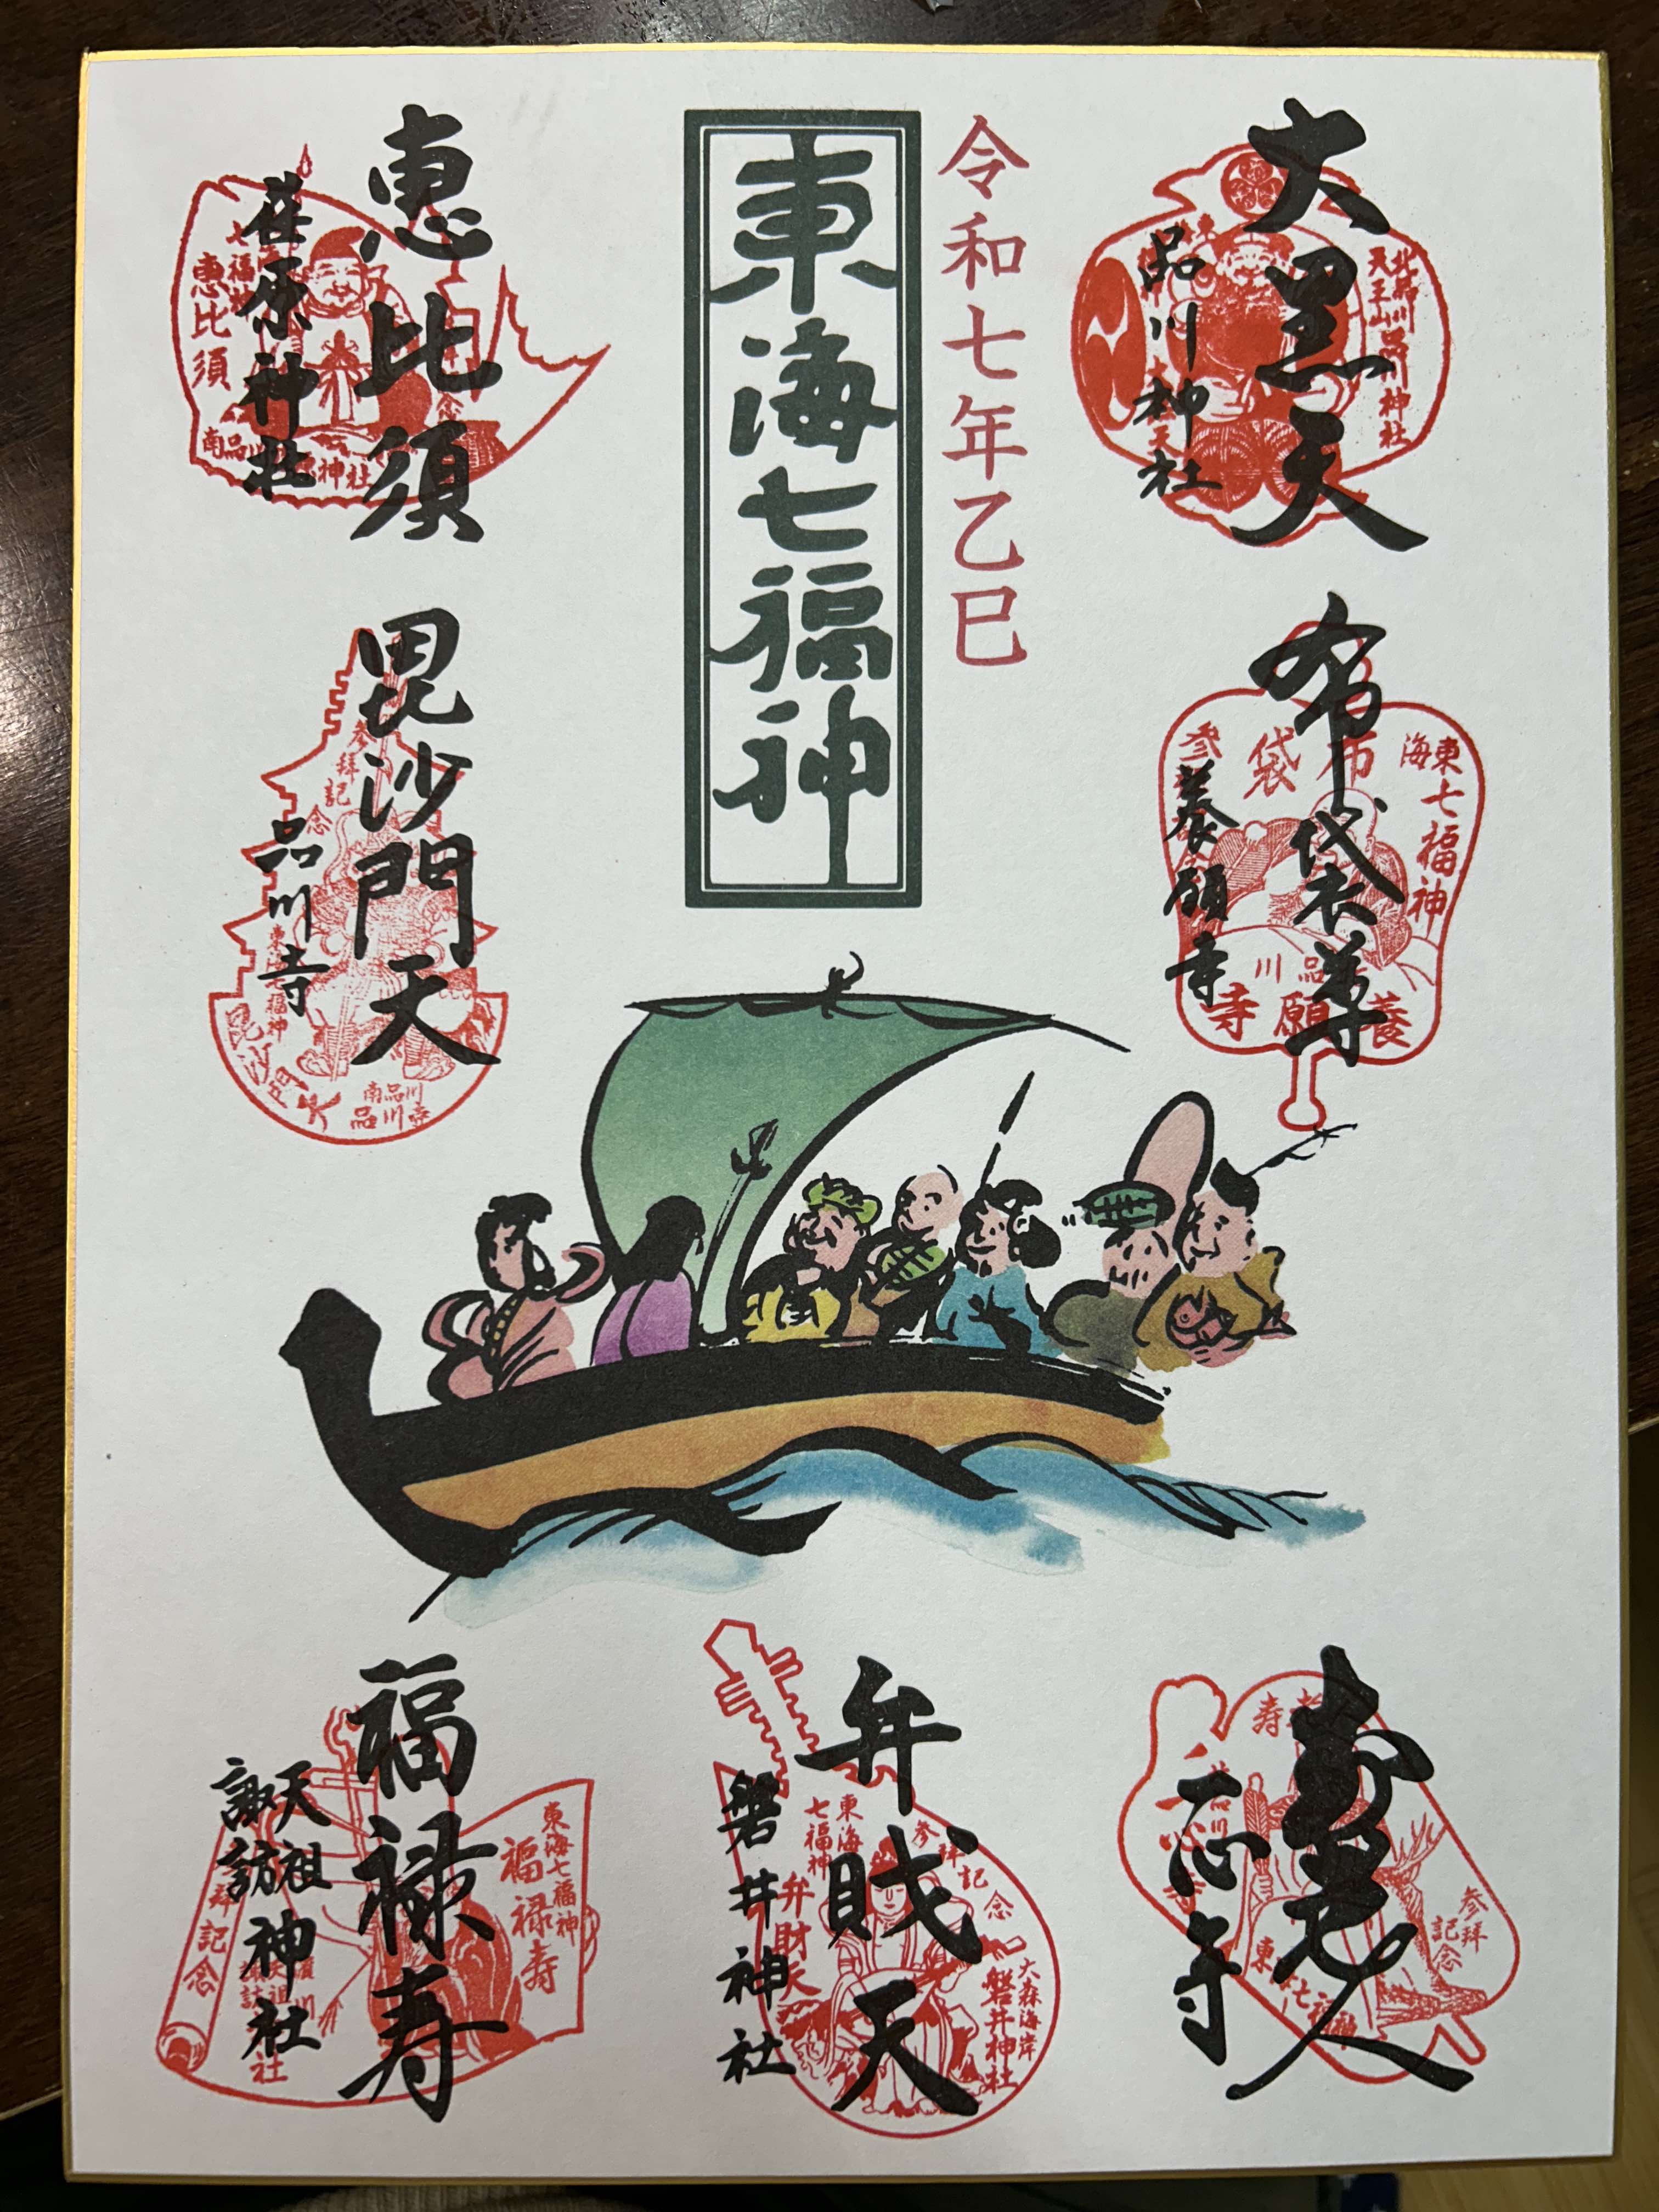 東海七福神
令和七年乙巳
大黒天
品川神社
北品川
天王山
品川神社
布袋尊
養願寺
東海七福神
布袋
品川
養願寺
恵比須
荏原神社
恵比須
南品川
神社
毘沙門天
品川寺
参拝記念
東海七福神
毘沙門天
南品川
品川寺
寿老人
一心寺
参拝
記念
弁財天
磐井神社
東海
七福神
弁財天
参拝記念
大森海岸
磐井神社
福禄寿
天祖
諏訪
神社
東海七福神
福禄寿
拝記念